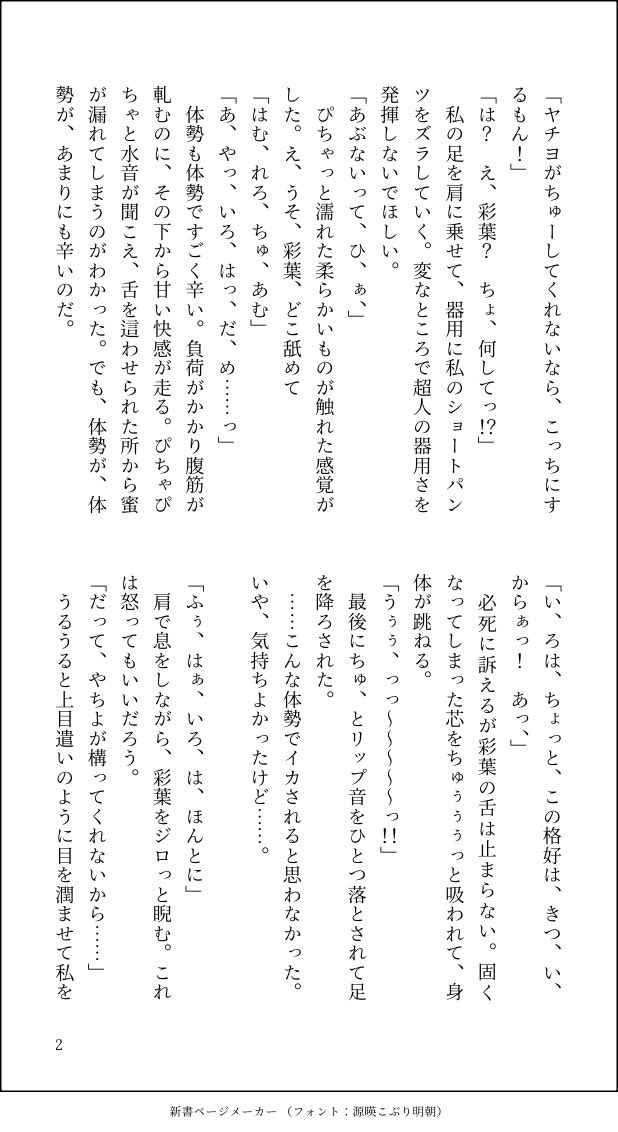 「ヤチヨがちゅーしてくれないなら、こっちにす
るもん！」
「は？　え、彩葉？　ちょ、何してっ!?」
　私の足を肩に乗せて、器用に私のショートパン
ツをズラしていく。変なところで超人の器用さを
発揮しないでほしい。
「あぶないって、ひ、ぁ、」
　ぴちゃっと濡れた柔らかいものが触れた感覚が
した。え、うそ、彩葉、どこ舐めて
「はむ、れろ、ちゅ、あむ」
「あ、やっ、いろ、はっ、だ、め……っ」
　体勢も体勢ですごく辛い。負荷がかかり腹筋が
軋むのに、その下から甘い快感が走る。ぴちゃぴ
ちゃと水音が聞こえ、舌を這わせられた所から蜜
が漏れてしまうのがわかった。でも、体勢が、体
勢が、あまりにも辛いのだ。
「い、ろは、ちょっと、この格好は、きつ、い、
からぁっ！　あっ、」
　必死に訴えるが彩葉の舌は止まらない。固く
なってしまった芯をちゅぅぅぅっと吸われて、身
体が跳ねる。
「うぅぅ、っっ〜〜〜〜〜っ!!」
　最後にちゅ、とリップ音をひとつ落とされて足
を降ろされた。
　……こんな体勢でイカされると思わなかった。
いや、気持ちよかったけど……。
「ふぅ、はぁ、いろ、は、ほんとに」
　肩で息をしながら、彩葉をジロっと睨む。これ
は怒ってもいいだろう。
「だって、やちよが構ってくれないから……」
　うるうると上目遣いのように目を潤ませて私を
2
新書ページメーカー（フォント：源暎こぶり明朝）